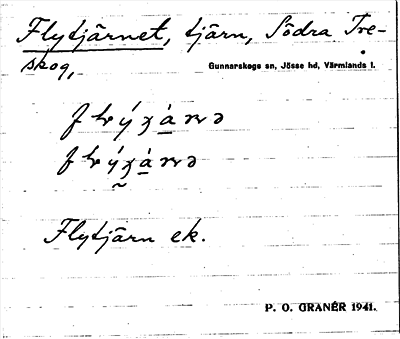 Flytjärnet, tjärn, Södra Tre-
skog,
Gunnarskogs sn, Jösse hd, Värmlands l.
Flytjärn ek.
P. O. GRANÉR 1941.